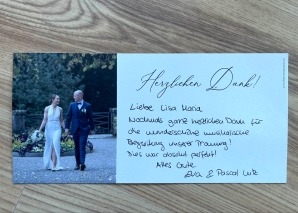 Herzlichen Dank!
Liebe Lisa Maria
Nochmals ganz herzlichen Dank für
die wunderschöne musikalische
Begleitung unserer Trauung!
Dies war absolut perfekt!
Alles Gute
& Pascal